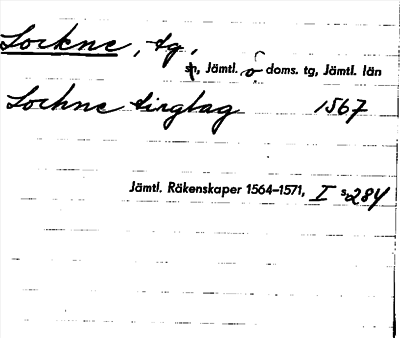 Lockne, tg,
sn, Jämtl. o doms. tg, Jämtl. län
Lochne tinglag 1567
Jämtl. Räkenskaper 1564–1571, I s 284